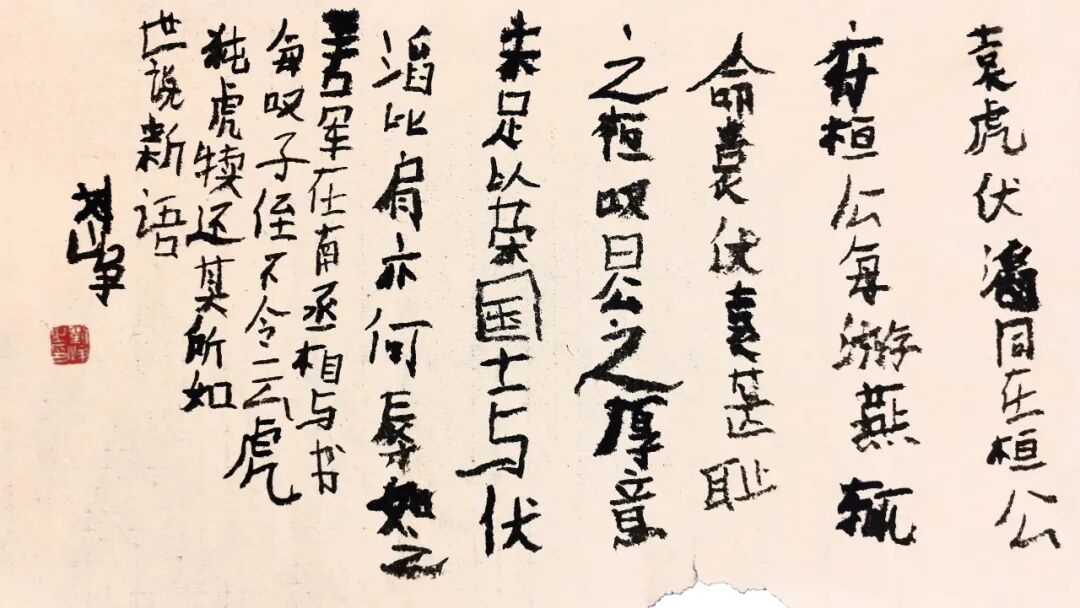 袁虎伏滔同在桓公
府桓公每游燕辄
命袁伏袁甚耻
之桓叹曰公之厚意
未足以荣国士与伏
滔比肩亦何辱如之
王右军在南丞相与书
每叹子侄不令云虎
㹠虎犊还其所如
世说新语
刘峥